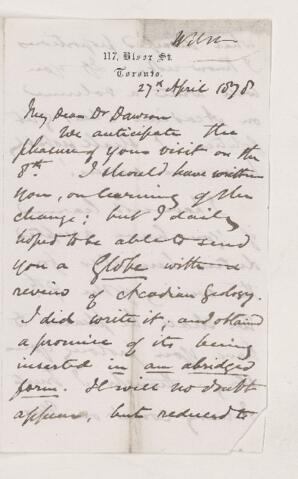 117, Bloor St.
Toronto.
27th April 1878
My Dear Dr Dawson
We anticipate the
pleasure of your visit on the
8th. I should have written
you, on learning of the
change; but I daily
hoped to be able to send
you a Globe with a
review of Acadian Geology.
I did write it, and obtained
a promise of its being
inserted in an abridged
form. It will no doubt
appear, but reduced to